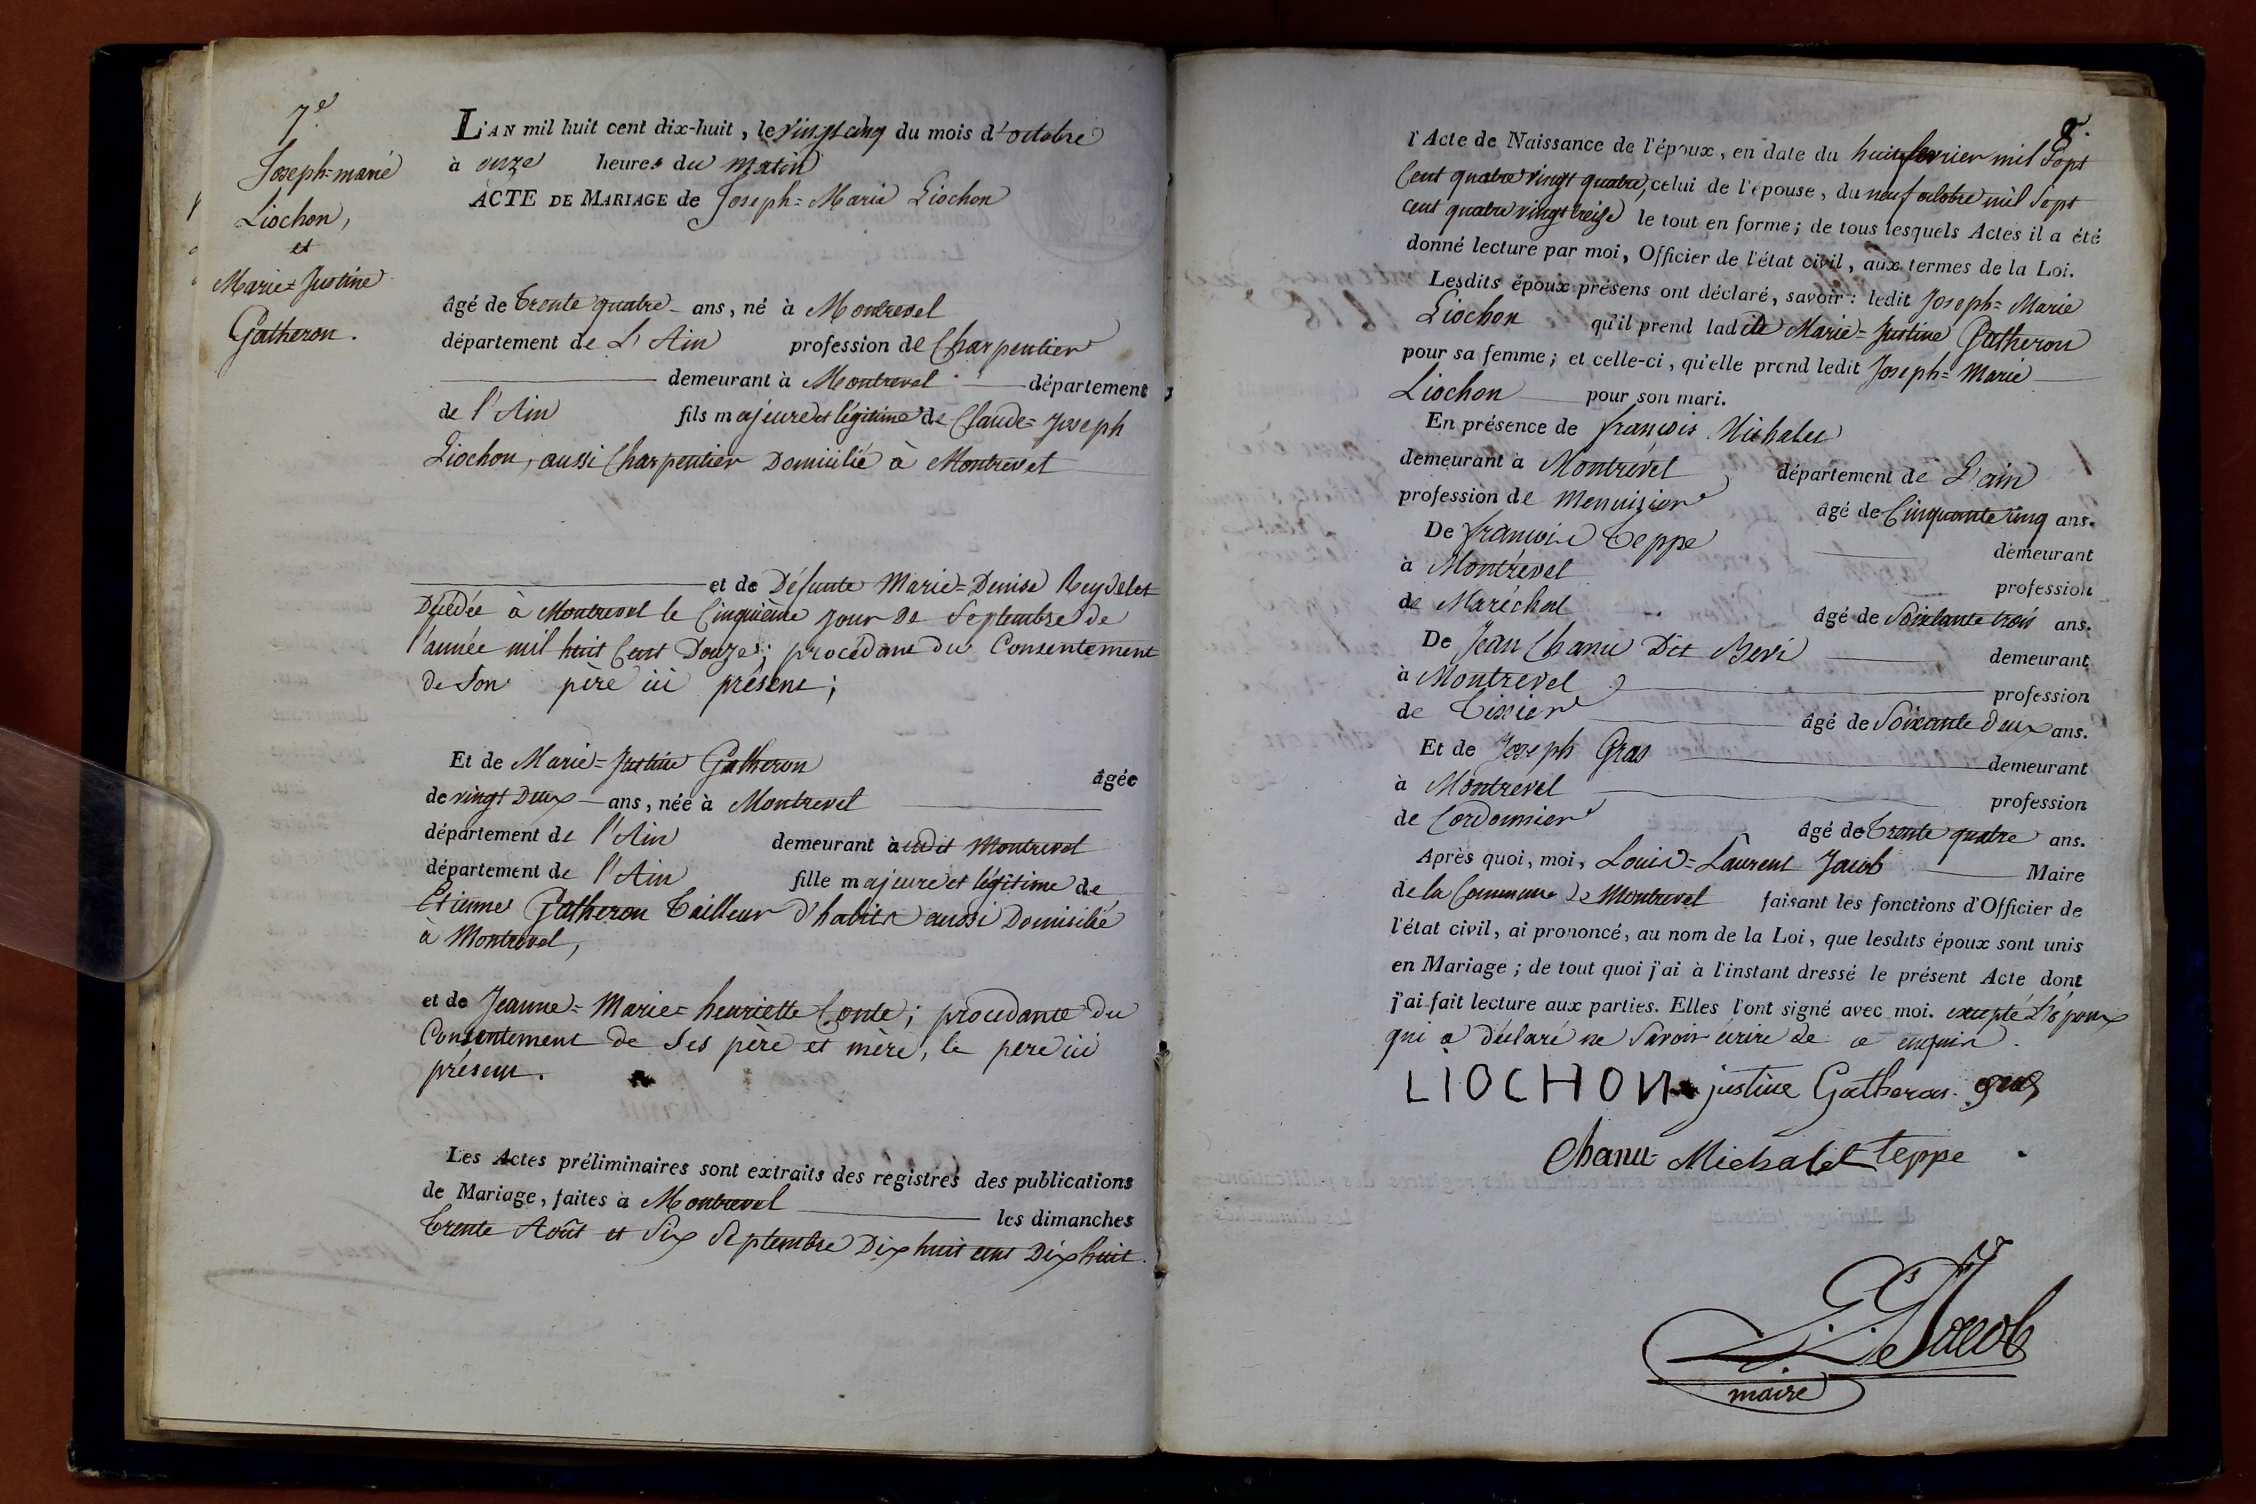 7e
Joseph=marie
Liochon,
et
Marie=Justine
Gatheron.
L'AN mil huit cent dix-huit, le vingt cinq du mois d'octobre
à onze heures du matin
ACTE DE MARIAGE de Joseph=Marie Liochon
âgé de trente quatre ans, né à Montrevel
département de L'Ain profession de Charpentier
demeurant à Montrevel département
de l'Ain fils majeure et légitime de Claude=Joseph
Liochon, aussi Charpentier Domicilié à Montrevel
et de Défunte Marie=Denise Reydelet
Décédée à Montrevel le Cinquième jour de Septembre de
l'année mil huit Cent Douze; procédant du Consentement
de Son père ici présent;
Et de Marie=Justine Gatheron âgée
de vingt Deux ans, née à Montrevel
département de l'Ain demeurant audit Montrevel
département de l'Ain fille majeure et légitime de
Etienne Gatheron Tailleur d'habits aussi Domicilié
à Montrevel,
et de Jeanne=Marie=henriette Conte; procedante du
Consentement de Ses père et mère, le pere ici
présent.
Les Actes préliminaires sont extraits des registres des publications
de Mariage, faites à Montrevel les dimanches
trente Août et Six Septembre Dix huit cent Dix huit.
8.
l'Acte de Naissance de l'époux, en date du huit fevrier mil Sept
Cent quatre vingt quatre, celui de l'épouse, du neuf octobre mil Sept
cent quatre vingt treize le tout en forme; de tous lesquels Actes il a été
donné lecture par moi, Officier de l'état civil, aux termes de la Loi.
Lesdits époux présens ont déclaré, savoir: ledit Joseph=Marie
Liochon qu'il prend ladite Marie=Justine Gatheron
pour sa femme; et celle-ci, qu'elle prend ledit Joseph=Marie
Liochon pour son mari.
En présence de françois Michalet
demeurant à Montrevel département de L'ain
profession de Menuizier âgé de Cinquante cinq ans.
De francois Teppe demeurant
à Montrevel profession
de Maréchal âgé de Soixante trois ans.
De Jean Chanu Dit Beri demeurant
à Montrevel profession
de Tissier âgé de Soixante Deux ans.
Et de Joseph Gras demeurant
à Montrevel profession
de Cordonnier âgé de Trente quatre ans.
Après quoi, moi, Louis=Laurent Jacob Maire
de la Commune de Montrevel faisant les fonctions d'Officier de
l'état civil, ai prononcé, au nom de la Loi, que lesdits époux sont unis
en Mariage; de tout quoi j'ai à l'instant dressé le présent Acte dont
j'ai fait lecture aux parties. Elles l'ont signé avec moi. excepté L'époux
qui a déclaré ne Savoir écrire de ce enquis.
LIOCHON justine Gatheron gras
Chanu Michalet teppe
Jacob
maire